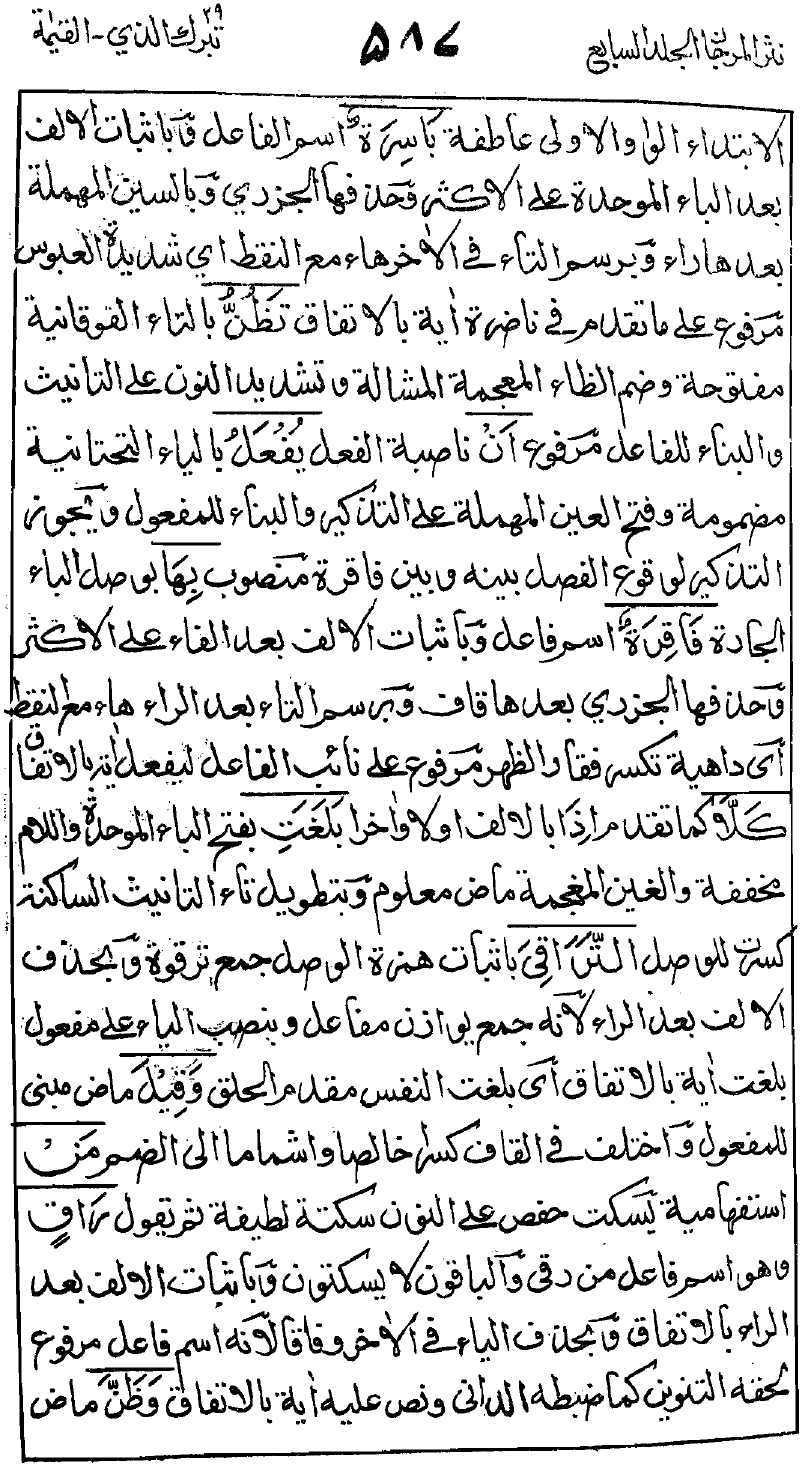 نثر المرجان الجلد السابع
۵۸۷
تبٰرك الذي ۲۹ - القيٰمة
الابتداء الواو الاولى عاطفة بَاسِرَةٌ اسم الفاعل وَباثبات الالف
بعد الباء الموحدة على الاكثر وَحذفها الجزري وَبالسين المهملة
بعدها راء وَبرسم التاء في الاٰخر هاء مع النقط اي شديدة العبوس
مَرفوع على ما تقدم في ناضرة اٰية بالاتفاق تَظُنُّ بالتاء الفوقانية
مفتوحة وضم الظاء المعجمة المشالة وتشديد النون على التانيث
والبناء للفاعل مَرفوع اَنْ ناصبة الفعل يُفْعَلَ بالياء التحتانية
مضمومة وفتح العين المهملة على التذكير والبناء للمفعول وَيجوز
التذكير لوقوع الفصل بينه وبين فاقرة مَنصوب بِهَا بوصل الباء
الجادة فَاقِرَةٌ اسم فاعل وَباثبات الالف بعد الفاء على الاكثر
وَحذفها الجزري بعدها قاف وَبرسم التاء بعد الراء هاء مع النقط
اَى داهية تكسر فقار الظهر مَرفوع على نائب الفاعل ليفعل اٰية بالاتفاق
كَلَّآ كما تقدم اِذَا بالالف اولا واٰخرا بَلَغَتِ بفتح الباء الموحدة واللام
مخففة والغين المعجمة ماض معلوم وَبتطويل تاء التانيث الساكنة
كسرت للوصل التَّرَاقِىَ باثبات همزة الوصل جمع ترقوة وَبحذف
الالف بعد الراء لاَنه جمع يوازن مفاعل وبنصب الياء على مفعول
بلغت اٰية بالاتفاق اَى بلغت النفس مقدم الحلق وَقِيْلَ ماض مبنى
للمفعول وَاختلف في القاف كسرا خالصا واشماما الى الضم مَنْ
استفهامية يَسكت حفص على النون سكتة لطيفة ثم يقول رَاقٍ
وهو اسم فاعل من رقى وَالباقون لا يسكتون وَباثبات الالف بعد
الراء بالاتفاق وَبحذف الياء في الاٰخر وفاقا لاَنه اسم فاعل مرفوع
لحقه التنوين كما ضبطه الدانى ونص عليه اٰية بالاتفاق وَظَنَّ ماض